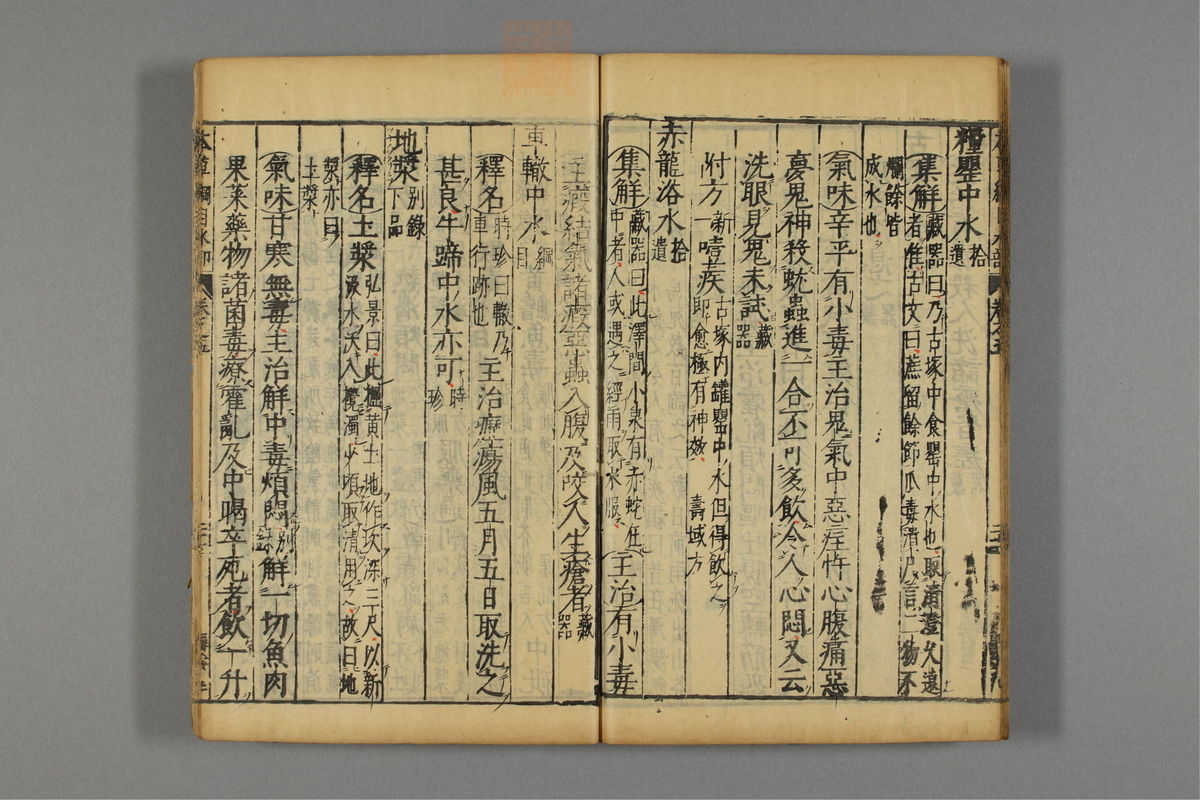 糧罌中水拾遺
集解藏器曰乃古塚中食罌中水也取清澄久遠者佳古文曰蔗留餘節瓜毒漬尸言二物不爛餘皆成水也
氣味辛平有小毒主治鬼氣中惡疰忤心腹痛惡
夢鬼神殺蚘蟲進一合不可多飲令人心悶又云
洗眼見鬼未試藏器
附方新一噎疾古塚内罐罌中水但得飲之即愈極有神效 壽域方
赤龍浴水拾遺
集解藏器曰此澤間小泉有赤蛇在中者人或遇之經雨取水服主治有小毒
主瘕結氣諸瘕惡蟲入腹及咬人生瘡者藏器
車轍中水綱目
釋名時珍曰轍乃車行跡也主治癧瘍風五月五日取洗之
甚良牛蹄中水亦可時珍
地漿別錄下品
釋名土漿弘景曰此掘黄土地作坎深三尺以新汲水沃入攪濁少頃取清用之故曰地漿亦曰土漿
氣味甘寒無毒主治解中毒煩悶別錄解一切魚肉
果菜藥物諸菌毒療霍亂及中暍卒死者飲一升